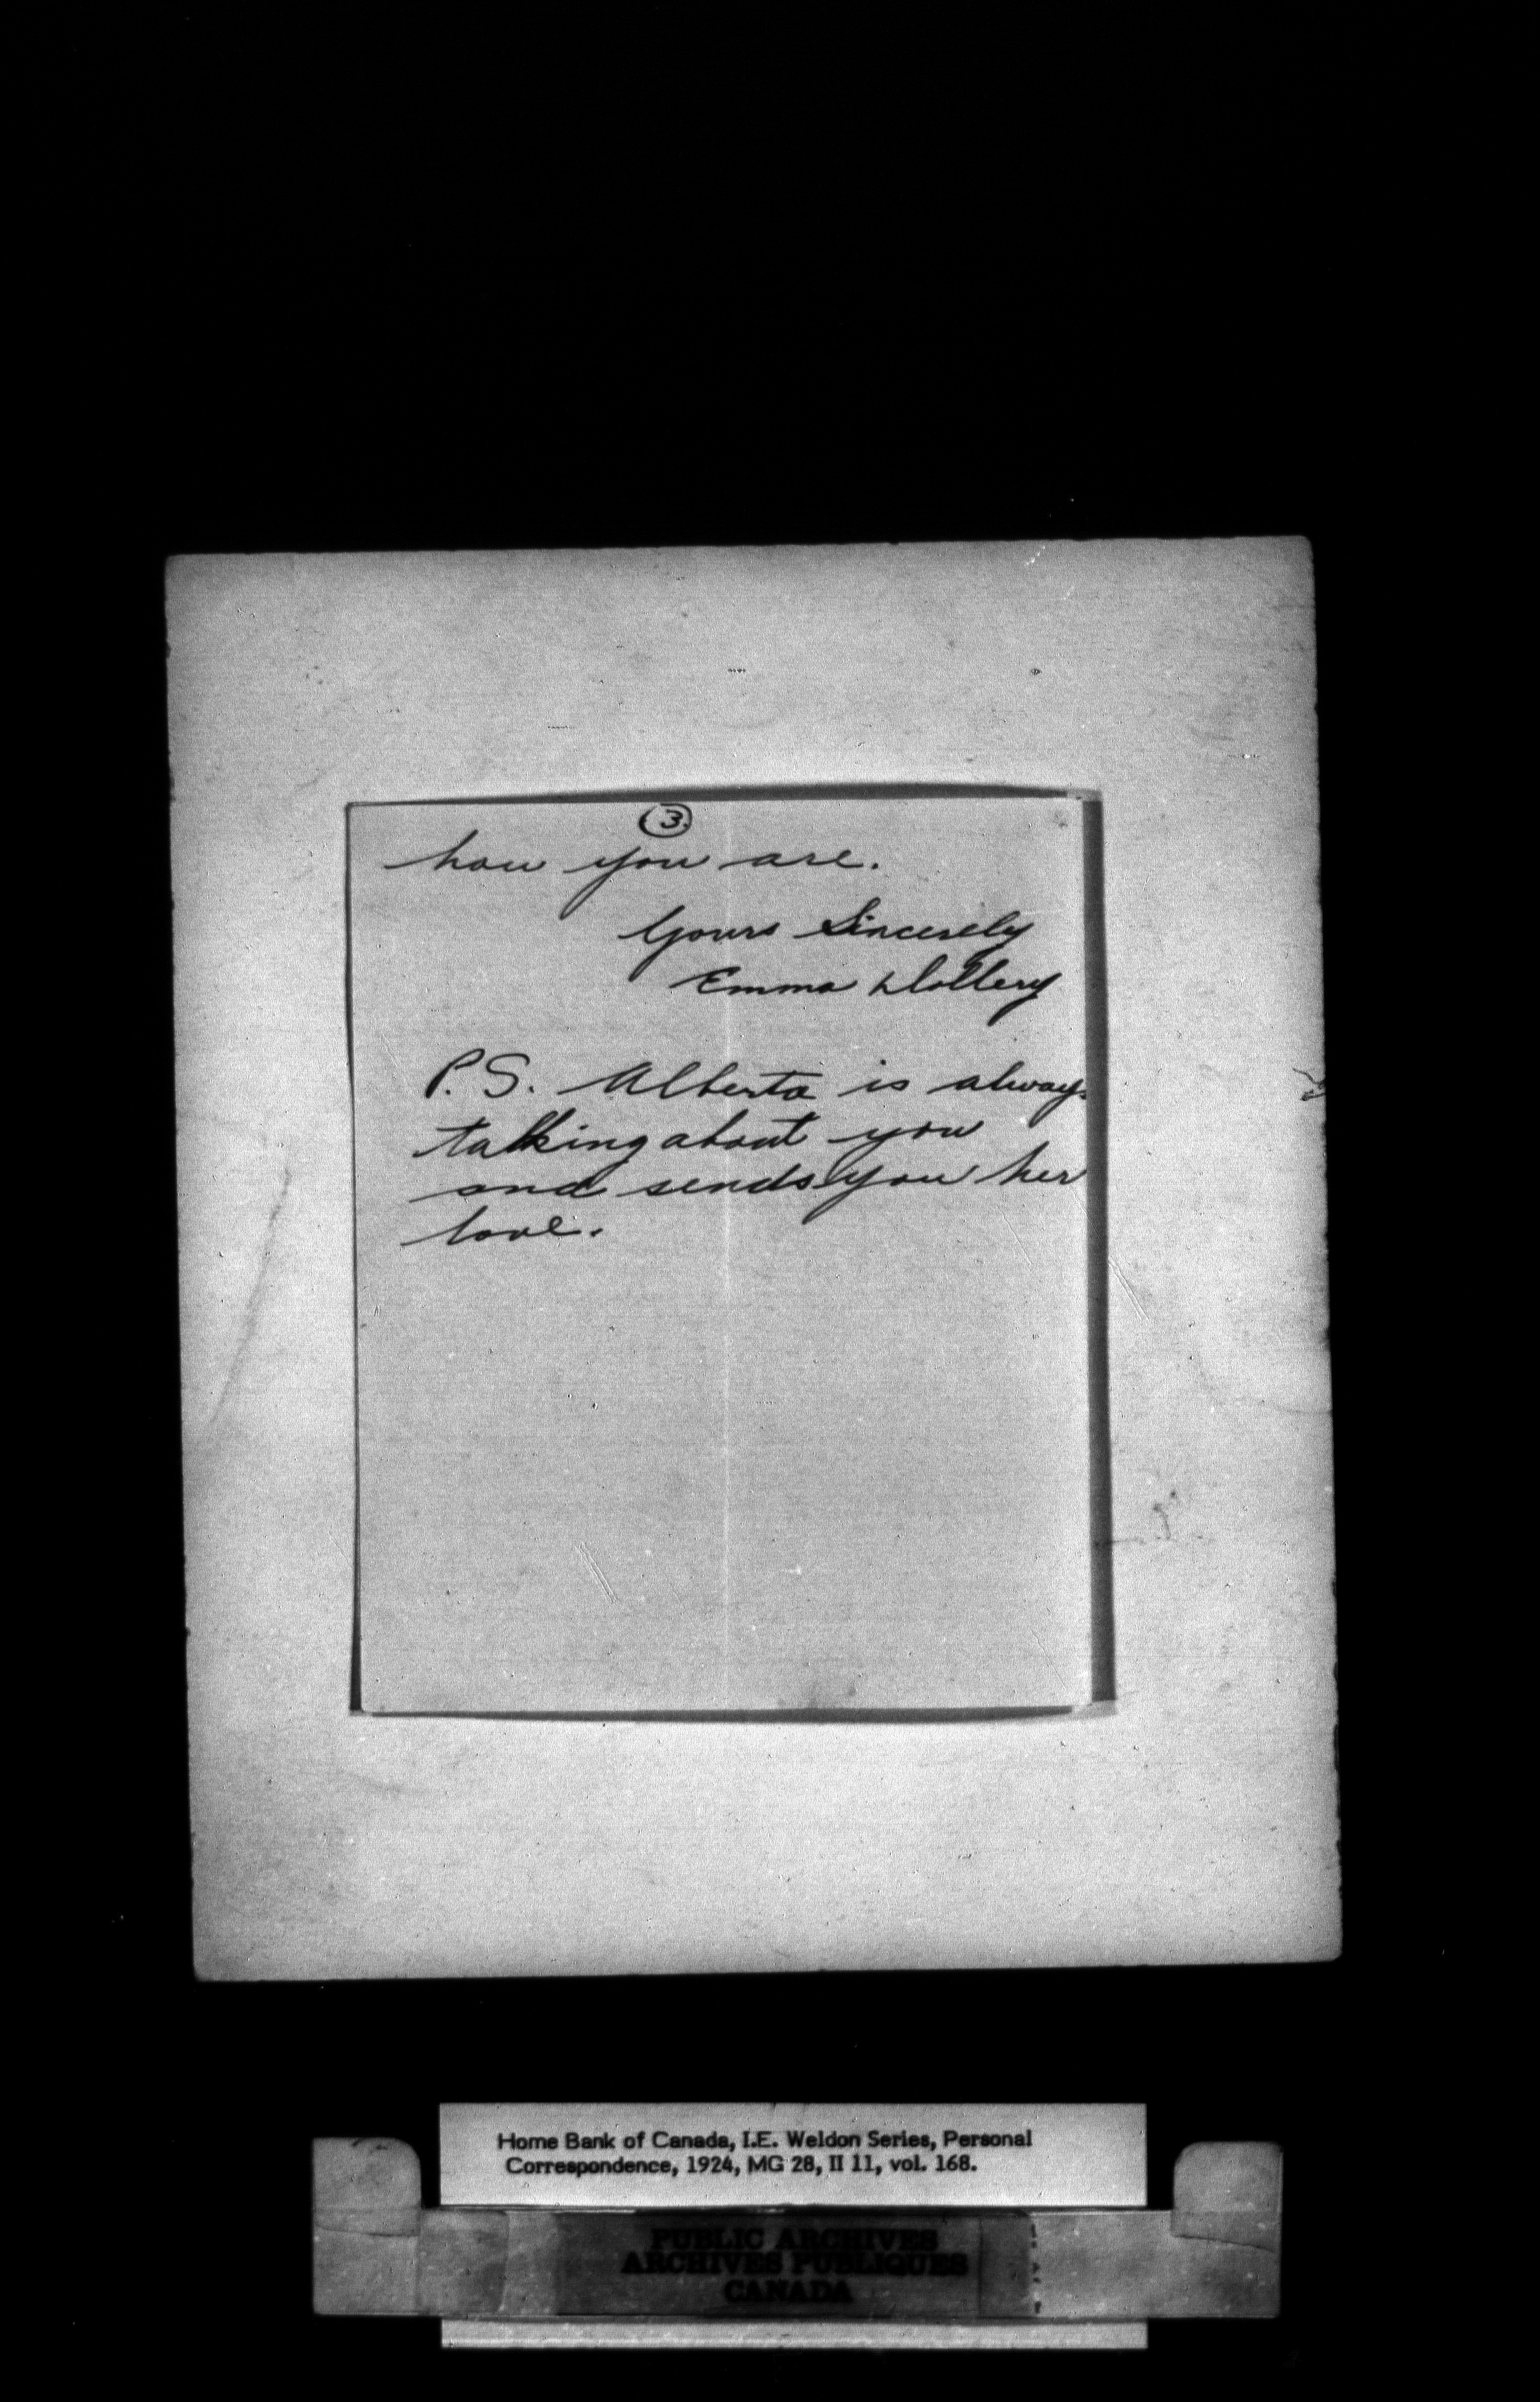 3.
how you are.
Yours Sincerely
Emma Dollery
P.S. Alberta is always
talking about you
and sends you her
love.
Home Bank of Canada, I.E. Weldon Series, Personal
Correspondence, 1924, MG 28, II 11, vol. 168.
PUBLIC ARCHIVES
ARCHIVES PUBLIQUES
CANADA